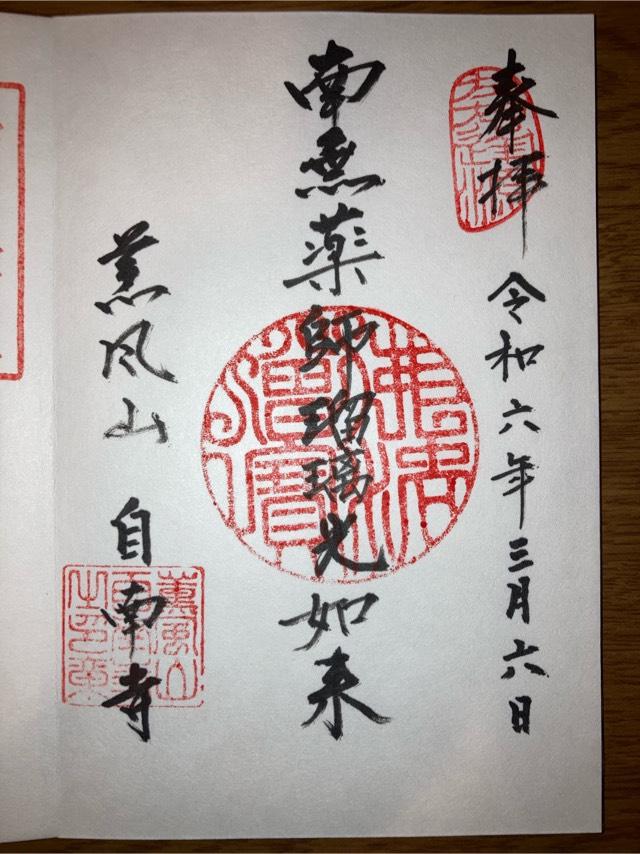 奉拝 令和六年三月六日
南無薬師瑠璃光如来
薫風山 自南寺